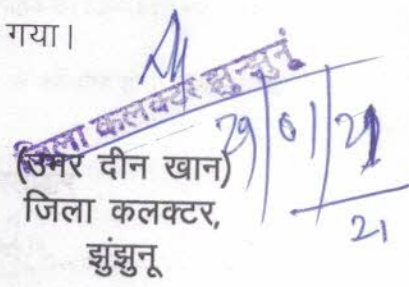 गया।
जिला कलक्टर झुन्झुनूं
29/01/21
21
(उमर दीन खान)
जिला कलक्टर,
झुंझुनू